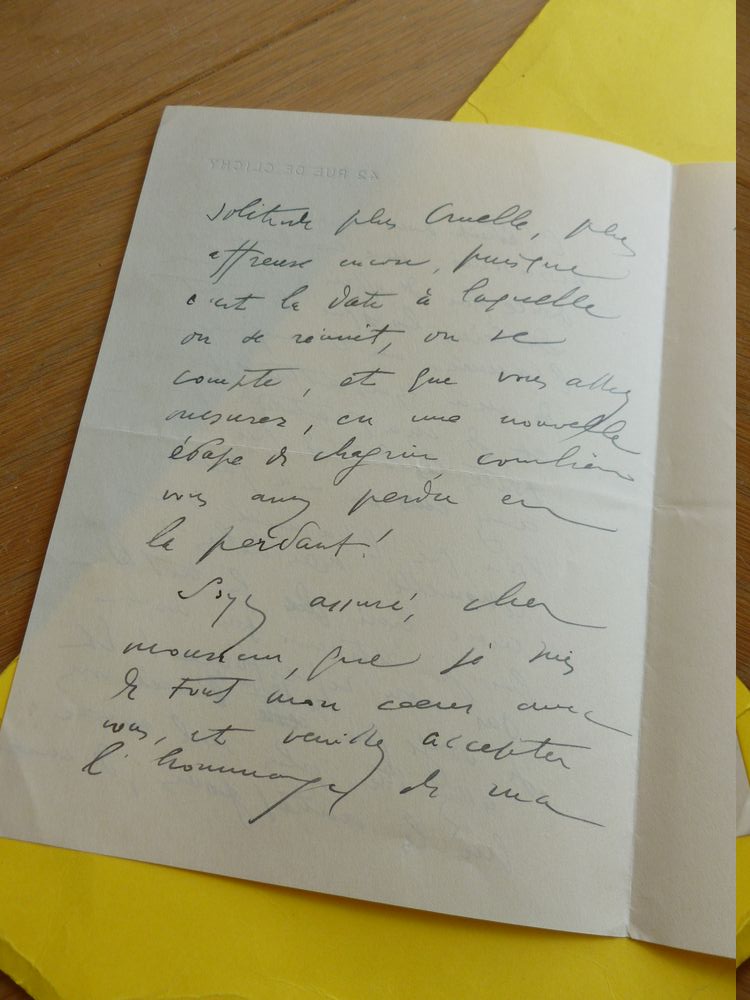 42 RUE DE CLICHY
solitude plus cruelle, plus
affreuse encore, puisque
c'est la date à laquelle
on se réunit, on se
compte, et que vous allez
mesurer, en une nouvelle
étape de chagrin combien
vous avez perdu en
la perdant !
Soyez assuré, cher
monsieur, que je suis
de tout mon cœur avec
vous, et veuillez accepter
l'hommage de ma